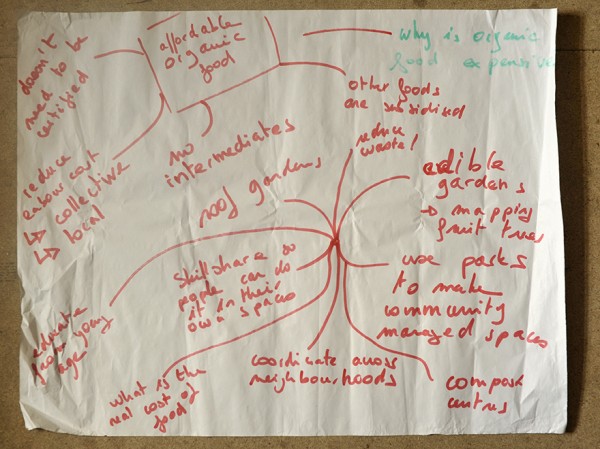 affordable
organic
food
why is organic
food expensive
doesn't
need to be
certified
other foods
are subsidised
no
intermediates
reduce
labour cost
↳ collective
↳ local
reduce
waste!
roof gardens
edible
gardens
→ mapping
fruit trees
skillshare so
people can do
it in their
own spaces
use parks
to make
community
managed spaces
educate
from young
age
what is the
real cost of
food?
coordinate across
neighbourhoods
compost
centres